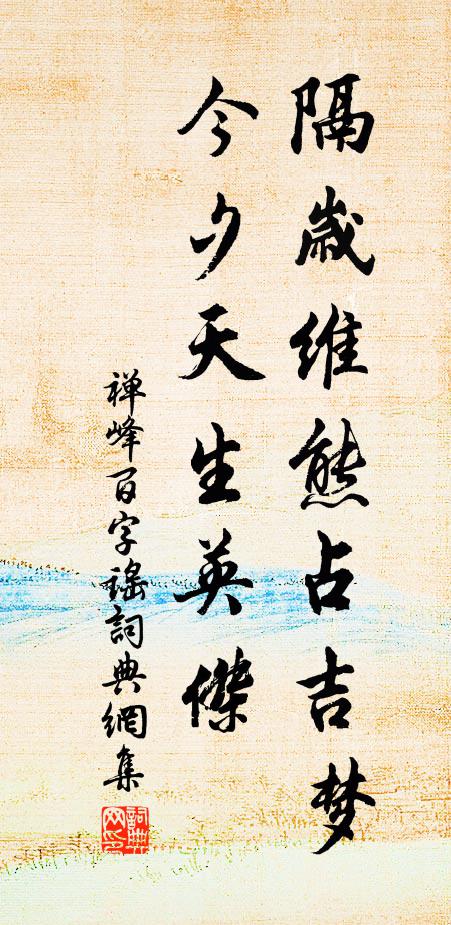 隔歲維熊占吉梦
今夕天生英傑
禅峰百字謠詞典網集